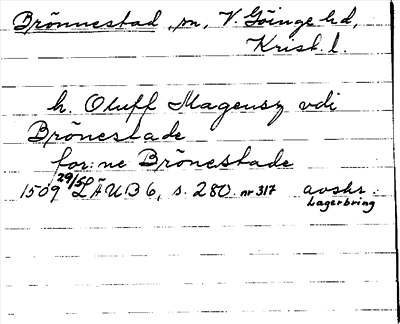 Brönnestad, sn, V. Göinge hd,
Krist. l.
h. Oluff Magensz vdi
Brönestade
for:ne Brönestade
1509 29/5 LÄUB 6, s. 280. nr 317 avskr.
Lagerbring